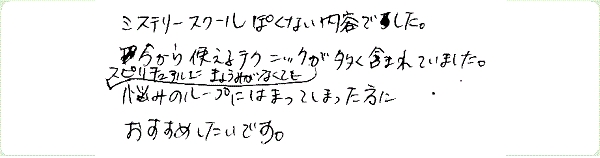 ミステリースクールぽくない内容でした。
今から使えるテクニックが多く含まれていました。
スピリチュアルにきょうみがなくても
悩みのループにはまってしまった方に
おすすめしたいです。